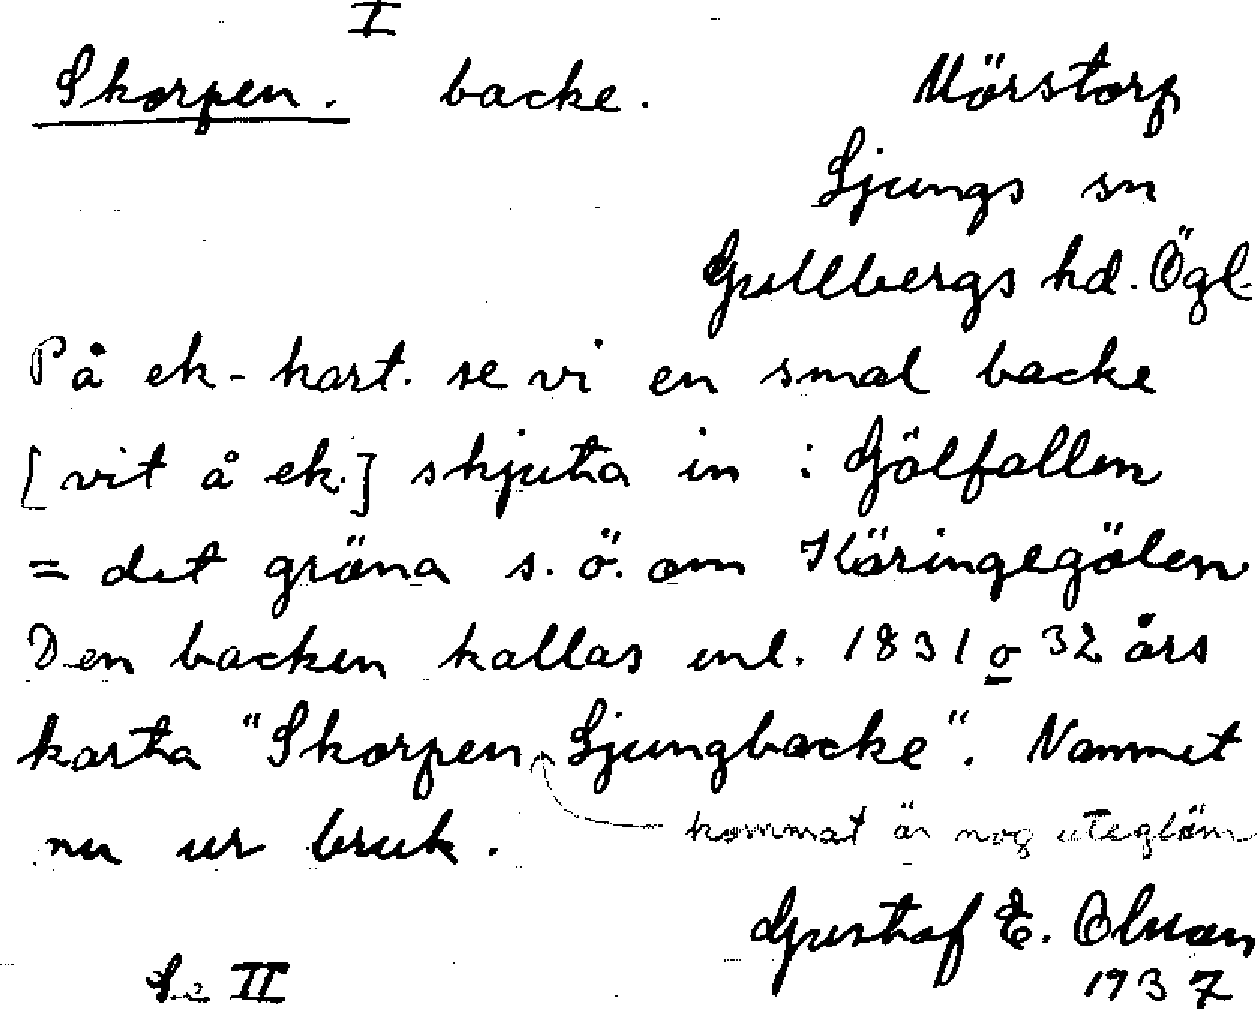 I
Skorpen. backe. Mörstorp
Ljungs sn
Gullbergs hd. Ögl.
På ek-kart. se vi en smal backe
[vit å ek.] skjuta in i Gölfallen
= det gröna s. ö. om Käringegölen
Den backen kallas enl. 1831 o 32 års
karta "Skorpen Ljungbacke". Namnet
nu ur bruk. kommat är nog uteglöm
Gustaf E. Olsson
1937
Se II